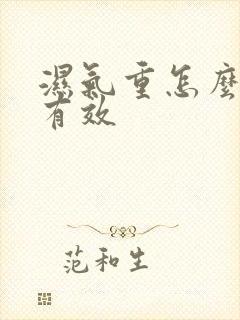 濕氣重怎麼
有效
范和生